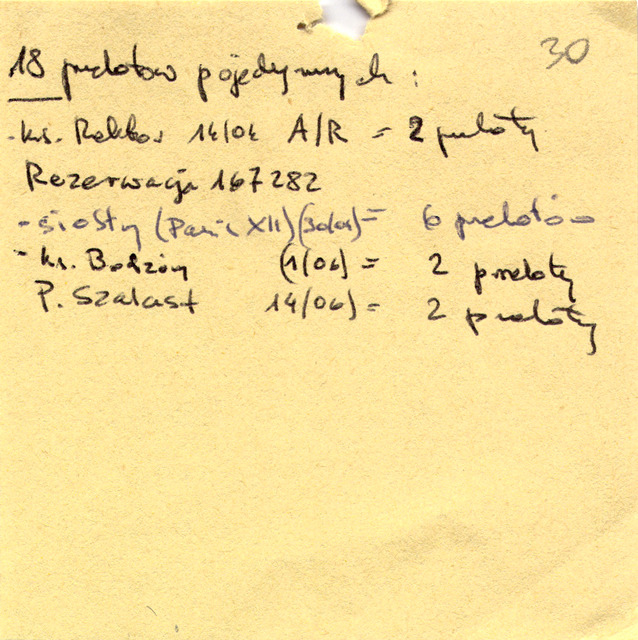 30
18 przelotów pojedynczych :
- ks. Rektor 14/04 A/R = 2 przeloty
Rezerwacja 167282
- siostry (Paric XII) = 6 przelotów
- ks. Bodzon (1/06) = 2 przeloty
P. Szalast 14/06) = 2 przeloty